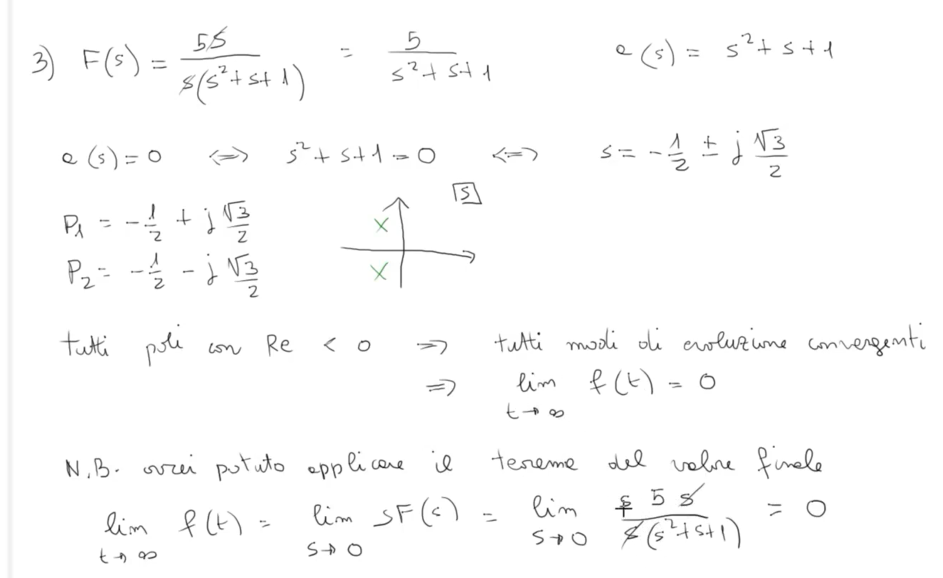 3) F(s) = 5s / s(s²+s+1) = 5 / s²+s+1    a(s) = s²+s+1
a(s)=0 <=> s²+s+1=0 <=> s = -1/2 ± j √3/2
P₁ = -1/2 + j √3/2
[s]
P₂ = -1/2 - j √3/2
tutti poli con Re < 0 => tutti modi di evoluzione convergenti
=> lim t→∞ f(t) = 0
N.B. avrei potuto applicare il teorema del valore finale
lim t→∞ f(t) = lim s→0 sF(s) = lim s→0 s 5 s / s(s²+s+1) = 0